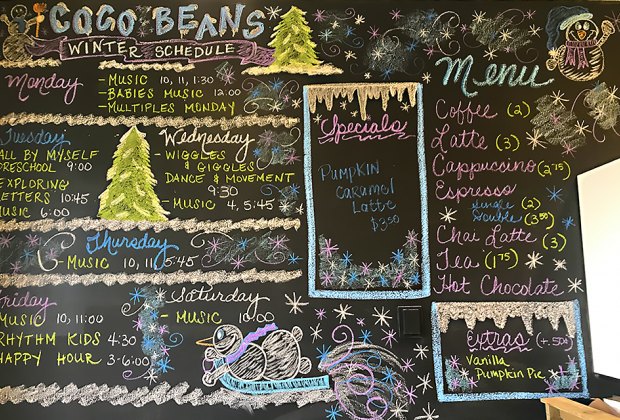 COCO BEANS
WINTER SCHEDULE
Monday
- MUSIC 10, 11, 1:30
- BABIES MUSIC 12:00
- MULTIPLES MONDAY
Tuesday
ALL BY MYSELF
PRESCHOOL 9:00
EXPLORING
LETTERS 10:45
MUSIC 6:00
Wednesday
- WIGGLES
& GIGGLES
DANCE & MOVEMENT
9:30
- MUSIC 4, 5:45
Thursday
- MUSIC 10, 11, 5:45
Friday
MUSIC 10, 11:00
RHYTHM KIDS 4:30
HAPPY HOUR 3-6:00
Saturday
- MUSIC 10:00
Specials
PUMPKIN
Caramel
Latte
$3.50
Menu
Coffee (2)
Latte (3)
Cappuccino (2.75)
Espresso
Single (2)
Double (3.00)
Chai Latte (3)
Tea (1.75)
Hot Chocolate
Extras (+.50)
Vanilla
Pumpkin Pie